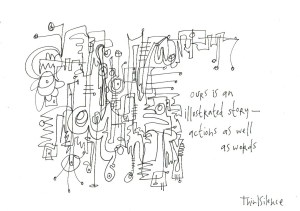 ours is an
illustrated story—
actions as well
as words
ThinkSilence